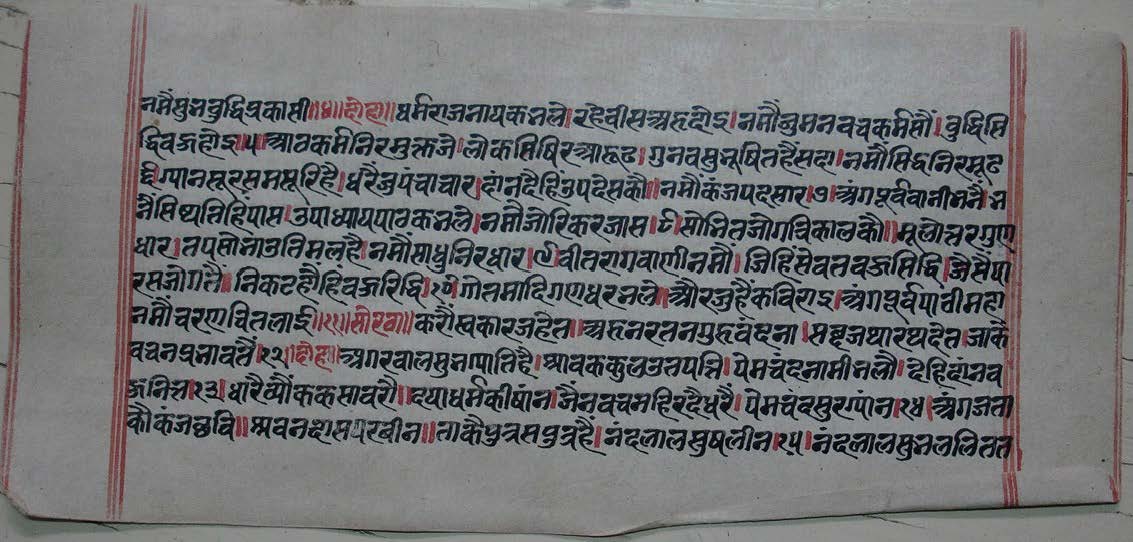 नमैंसुनबुद्धिप्रकासी॥४॥दोहा॥धर्मराजनायकभले।रहेवीसअरुदोइ।नमौंजुमनवचकर्मसौं।बुद्धिसि
द्धिवऊहोइ।५।आठकर्मनिरमुक्तजे।लोकसिषिरआरूढ।गुनवसुभूषितहैंसदा।नमौंसिद्धनिरमूढ
६।ग्यानसूरसमसूरिहै।धरैजुपंचाचार।दांनदैहिंउपदेसकौ॥नमौंकंजपदसार।७।अंगपूर्ववानीभनै।भ
नैसिष्यतिहिंपास।उपाध्यायपाठकभले।नमौजोरिकरजास।८।सोभितजोगत्रिकालकौ॥मूलोत्तरगुण
धार।तपसोभाअतिमलहै।नमौंसाधुनिरधार।९।वीतरागवाणीनमौं।जिहिंसेवतवऊसिद्धि।जैसैंपा
रसजोगतै॥निकटहौहिंवऊरिद्धि।१०।गोतमादिगणधरभले।औरजुहैंकविराइ।अंगपूर्वपाठीमहा
नमौंचरणचितलाई॥११॥सोरठा॥करौंस्वकारजहेत।अरुनरतनगुरुवंदना।सब्दअथारथदेत।जाकै
वचनप्रभावतैं।१२।दोहा॥अगरवालसुभग्यातिहै।श्रावककुलउतपत्ति।पेमचंदनामीभलौ।देहिदांनव
ऊनित्त।१३।धारैव्यौंककसावगै॥दयाधर्मकीषांन।जैनवचनहिरदैधरैं।पेमचंदसुरग्यांन।१४।अंगजता
कौकंजछवि॥श्रवनदासपरबीन॥ताकौपुत्रसपुत्रहै।नंदलालसुषलीन।१५।नंदलालसुभललितत